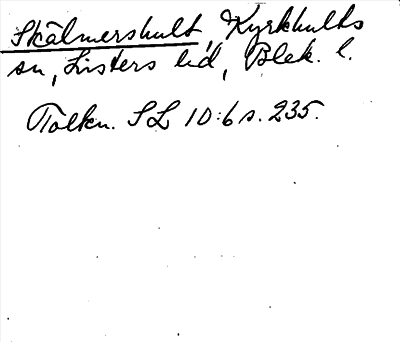 Skälmershult, Kyrkhults
sn, Listers hd, Blek. l.
Tolkn. SL 10:6 s. 235.